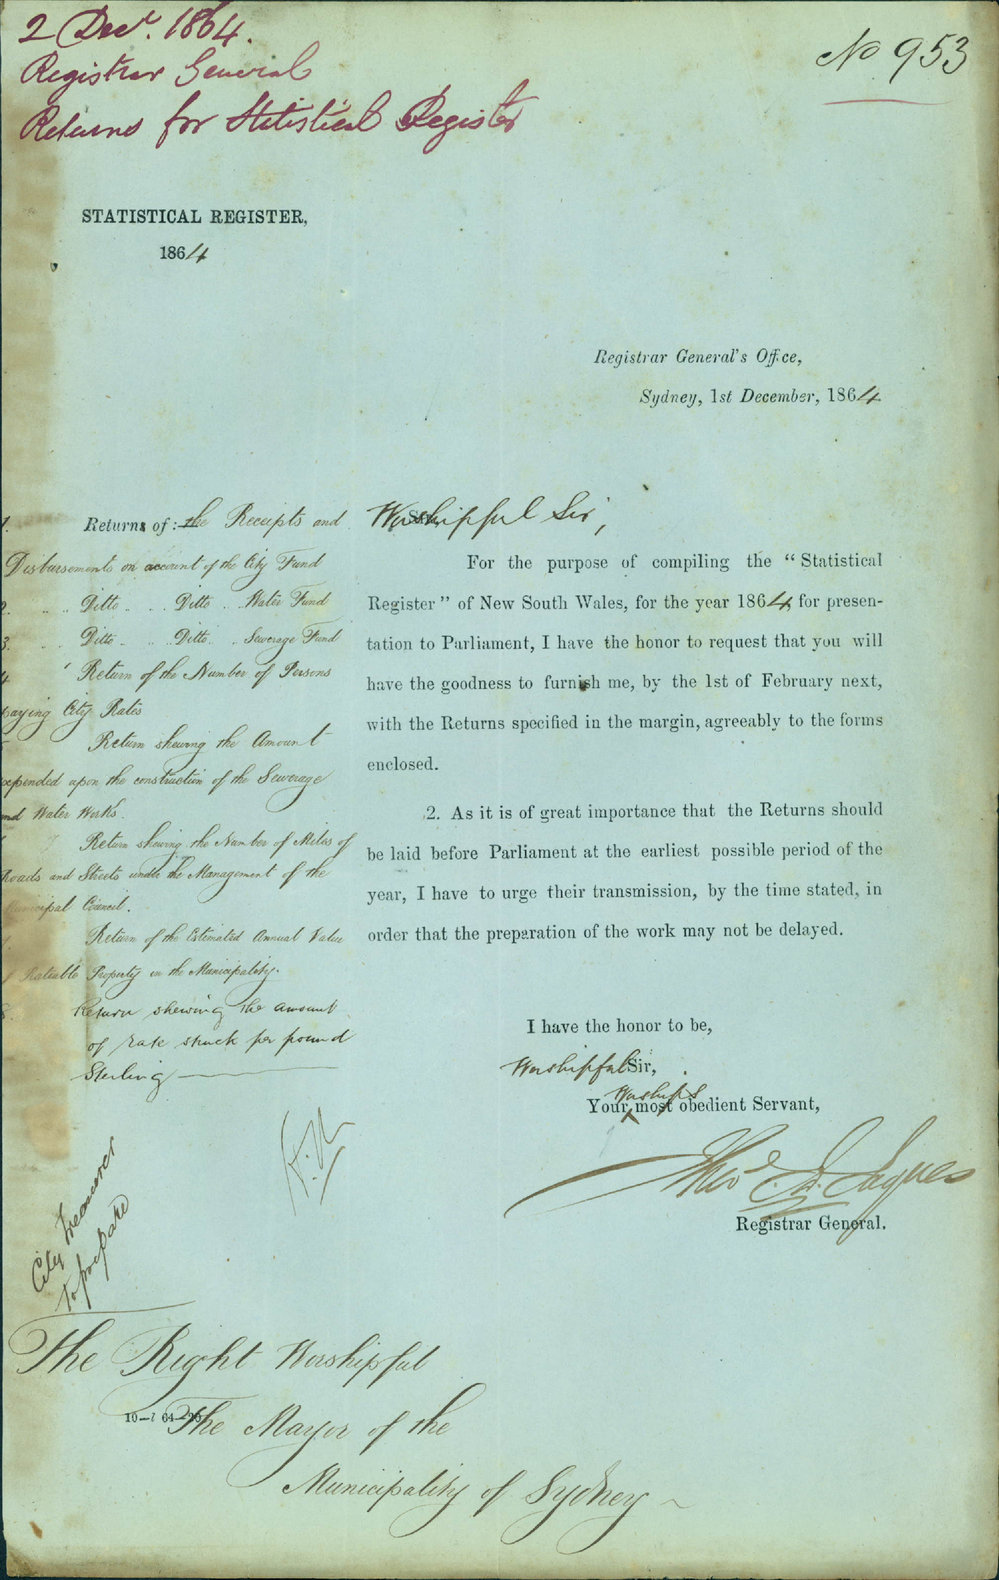 2 Decr. 1864.
Registrar General
Returns for Statistical Register
No 953
STATISTICAL REGISTER,
1864
Registrar General's Office,
Sydney, 1st December, 1864
1. Returns of:— the Receipts and
Disbursements on account of the City Fund
2. Ditto Ditto Water Fund
3. Ditto Ditto Sewerage Fund
4 Return of the Number of Persons
paying City Rates
Return shewing the Amount
expended upon the construction of the Sewerage
and Water Works.
Return shewing the Number of Miles of
Roads and Streets under the Management of the
Municipal Council.
Return of the Estimated Annual Value
of Rateable Property in the Municipality.
8. Return shewing the amount
of rate struck per pound
Sterling —
City Treasurer
to prepare
Worshipful Sir,
For the purpose of compiling the "Statistical
Register" of New South Wales, for the year 1864 for presen-
tation to Parliament, I have the honor to request that you will
have the goodness to furnish me, by the 1st of February next,
with the Returns specified in the margin, agreeably to the forms
enclosed.
2. As it is of great importance that the Returns should
be laid before Parliament at the earliest possible period of the
year, I have to urge their transmission, by the time stated, in
order that the preparation of the work may not be delayed.
I have the honor to be,
Worshipful Sir,
Your Worship's most obedient Servant,
Theo. J. Jaques
Registrar General.
The Right Worshipful
10—7 64—20
The Mayor of the
Municipality of Sydney